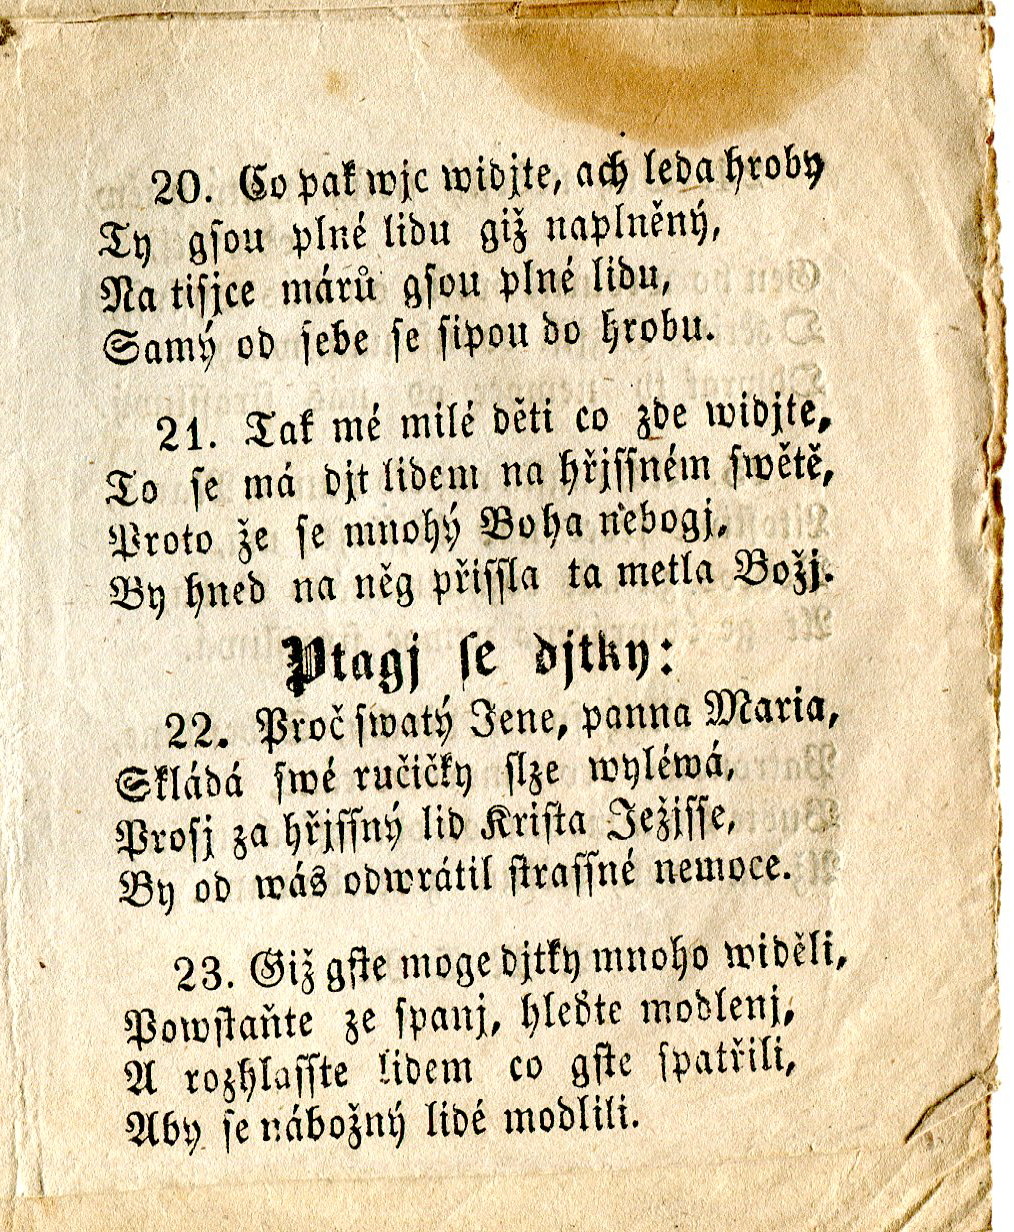 20. Co pak wjc widjte, ach leda hroby
Ty gsou plné lidu giž naplněný,
Na tisjce márů gsou plné lidu,
Samý od sebe se sipou do hrobu.
21. Tak mé milé děti co zde widjte,
To se má djt lidem na hřjssném swětě,
Proto že se mnohý Boha nebogj,
By hned na něg přissla ta metla Božj.
Ptagj se djtky:
22. Proč swatý Jene, panna Maria,
Skládá swé ručičky slze wyléwá,
Prosj za hřjssný lid Krista Ježjsse,
By od wás odwrátil strassné nemoce.
23. Giž gste moge djtky mnoho widěli,
Powstaňte ze spanj, hleďte modlenj,
A rozhlasste lidem co gste spatřili,
Aby se nábožný lidé modlili.